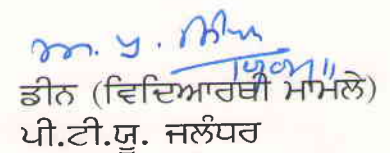 ਡੀਨ (ਵਿਦਿਆਰਥੀ ਮਾਮਲੇ)
ਪੀ.ਟੀ.ਯੂ. ਜਲੰਧਰ